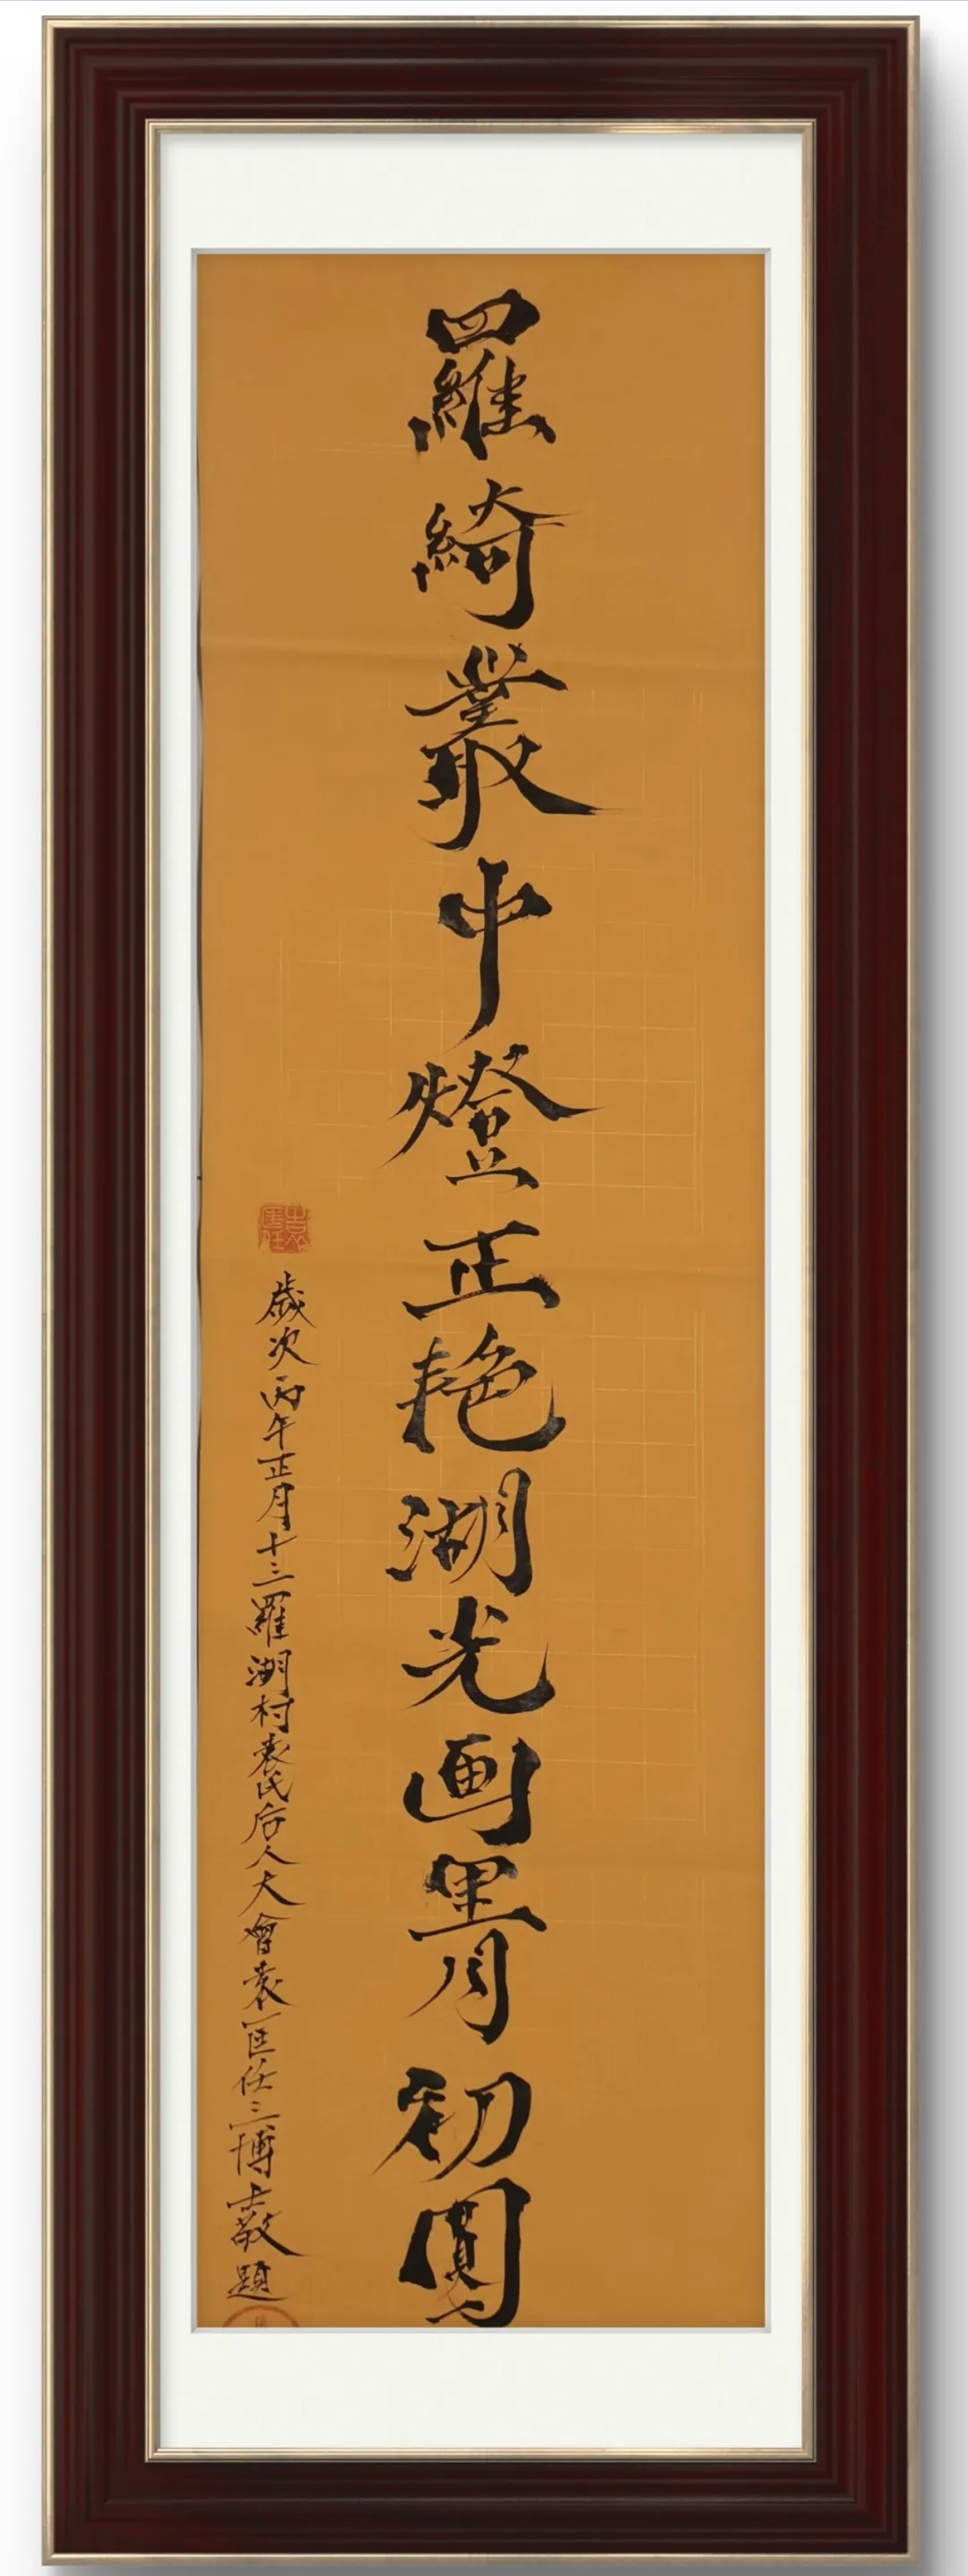 羅綺叢中燈正艳湖光画里月初圓
歲次丙午正月十三羅湖村袁氏后人大會袁匡任三博士敬題